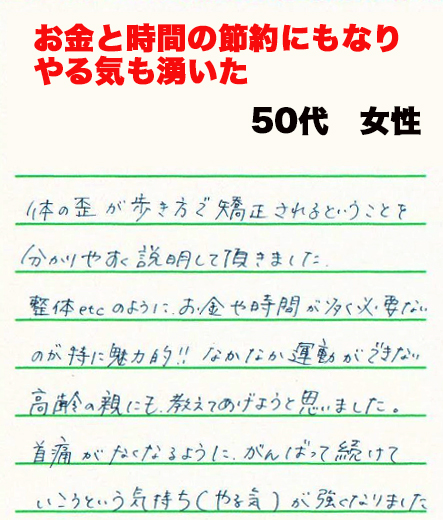 お金と時間の節約にもなり
やる気も湧いた
50代　女性
体の歪が歩き方で矯正されるということを
分かりやすく説明して頂きました.
整体etcのように、お金や時間が多く必要ない
のが特に魅力的!! なかなか運動ができない
高齢の親にも、教えてあげようと思いました。
首痛がなくなるように、がんばって続けて
いこうという気持ち(やる気)が強くなりました